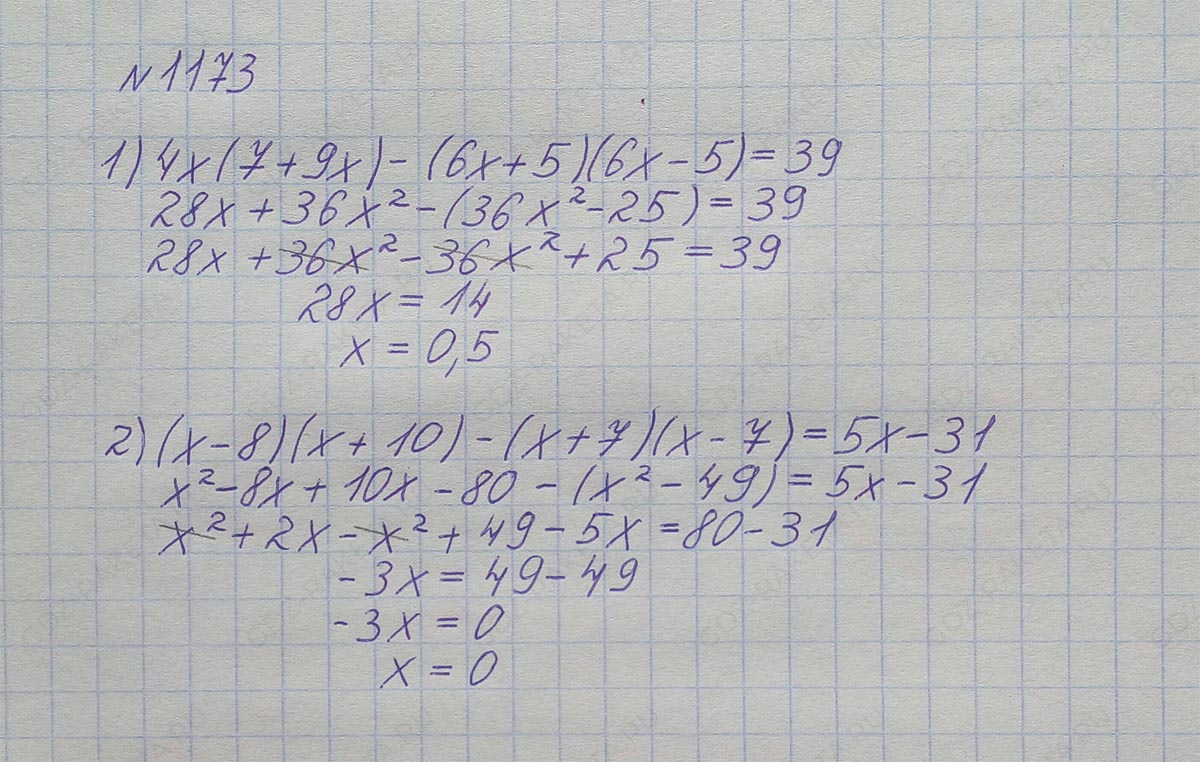 N 1173
1) 4x(7+9x)-(6x+5)(6x-5)=39
28x+36x²-(36x²-25)=39
28x+36x²-36x²+25=39
28x=14
x=0,5
2) (x-8)(x+10)-(x+7)(x-7)=5x-31
x²-8x+10x-80-(x²-49)=5x-31
x²+2x-x²+49-5x=80-31
-3x=49-49
-3x=0
x=0